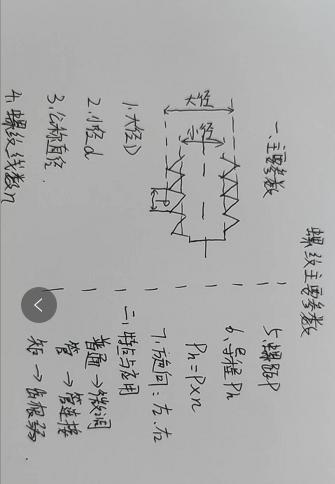 螺纹主要参数
一、主要参数
大径
小径
P
1.大径D
2.小径d
3.公称直径.
4.螺纹线数n
5.螺距P
6.导程Ph
Ph=P×n
7.方向:左.右
二、特点与应用
普通→微调
管→管连接